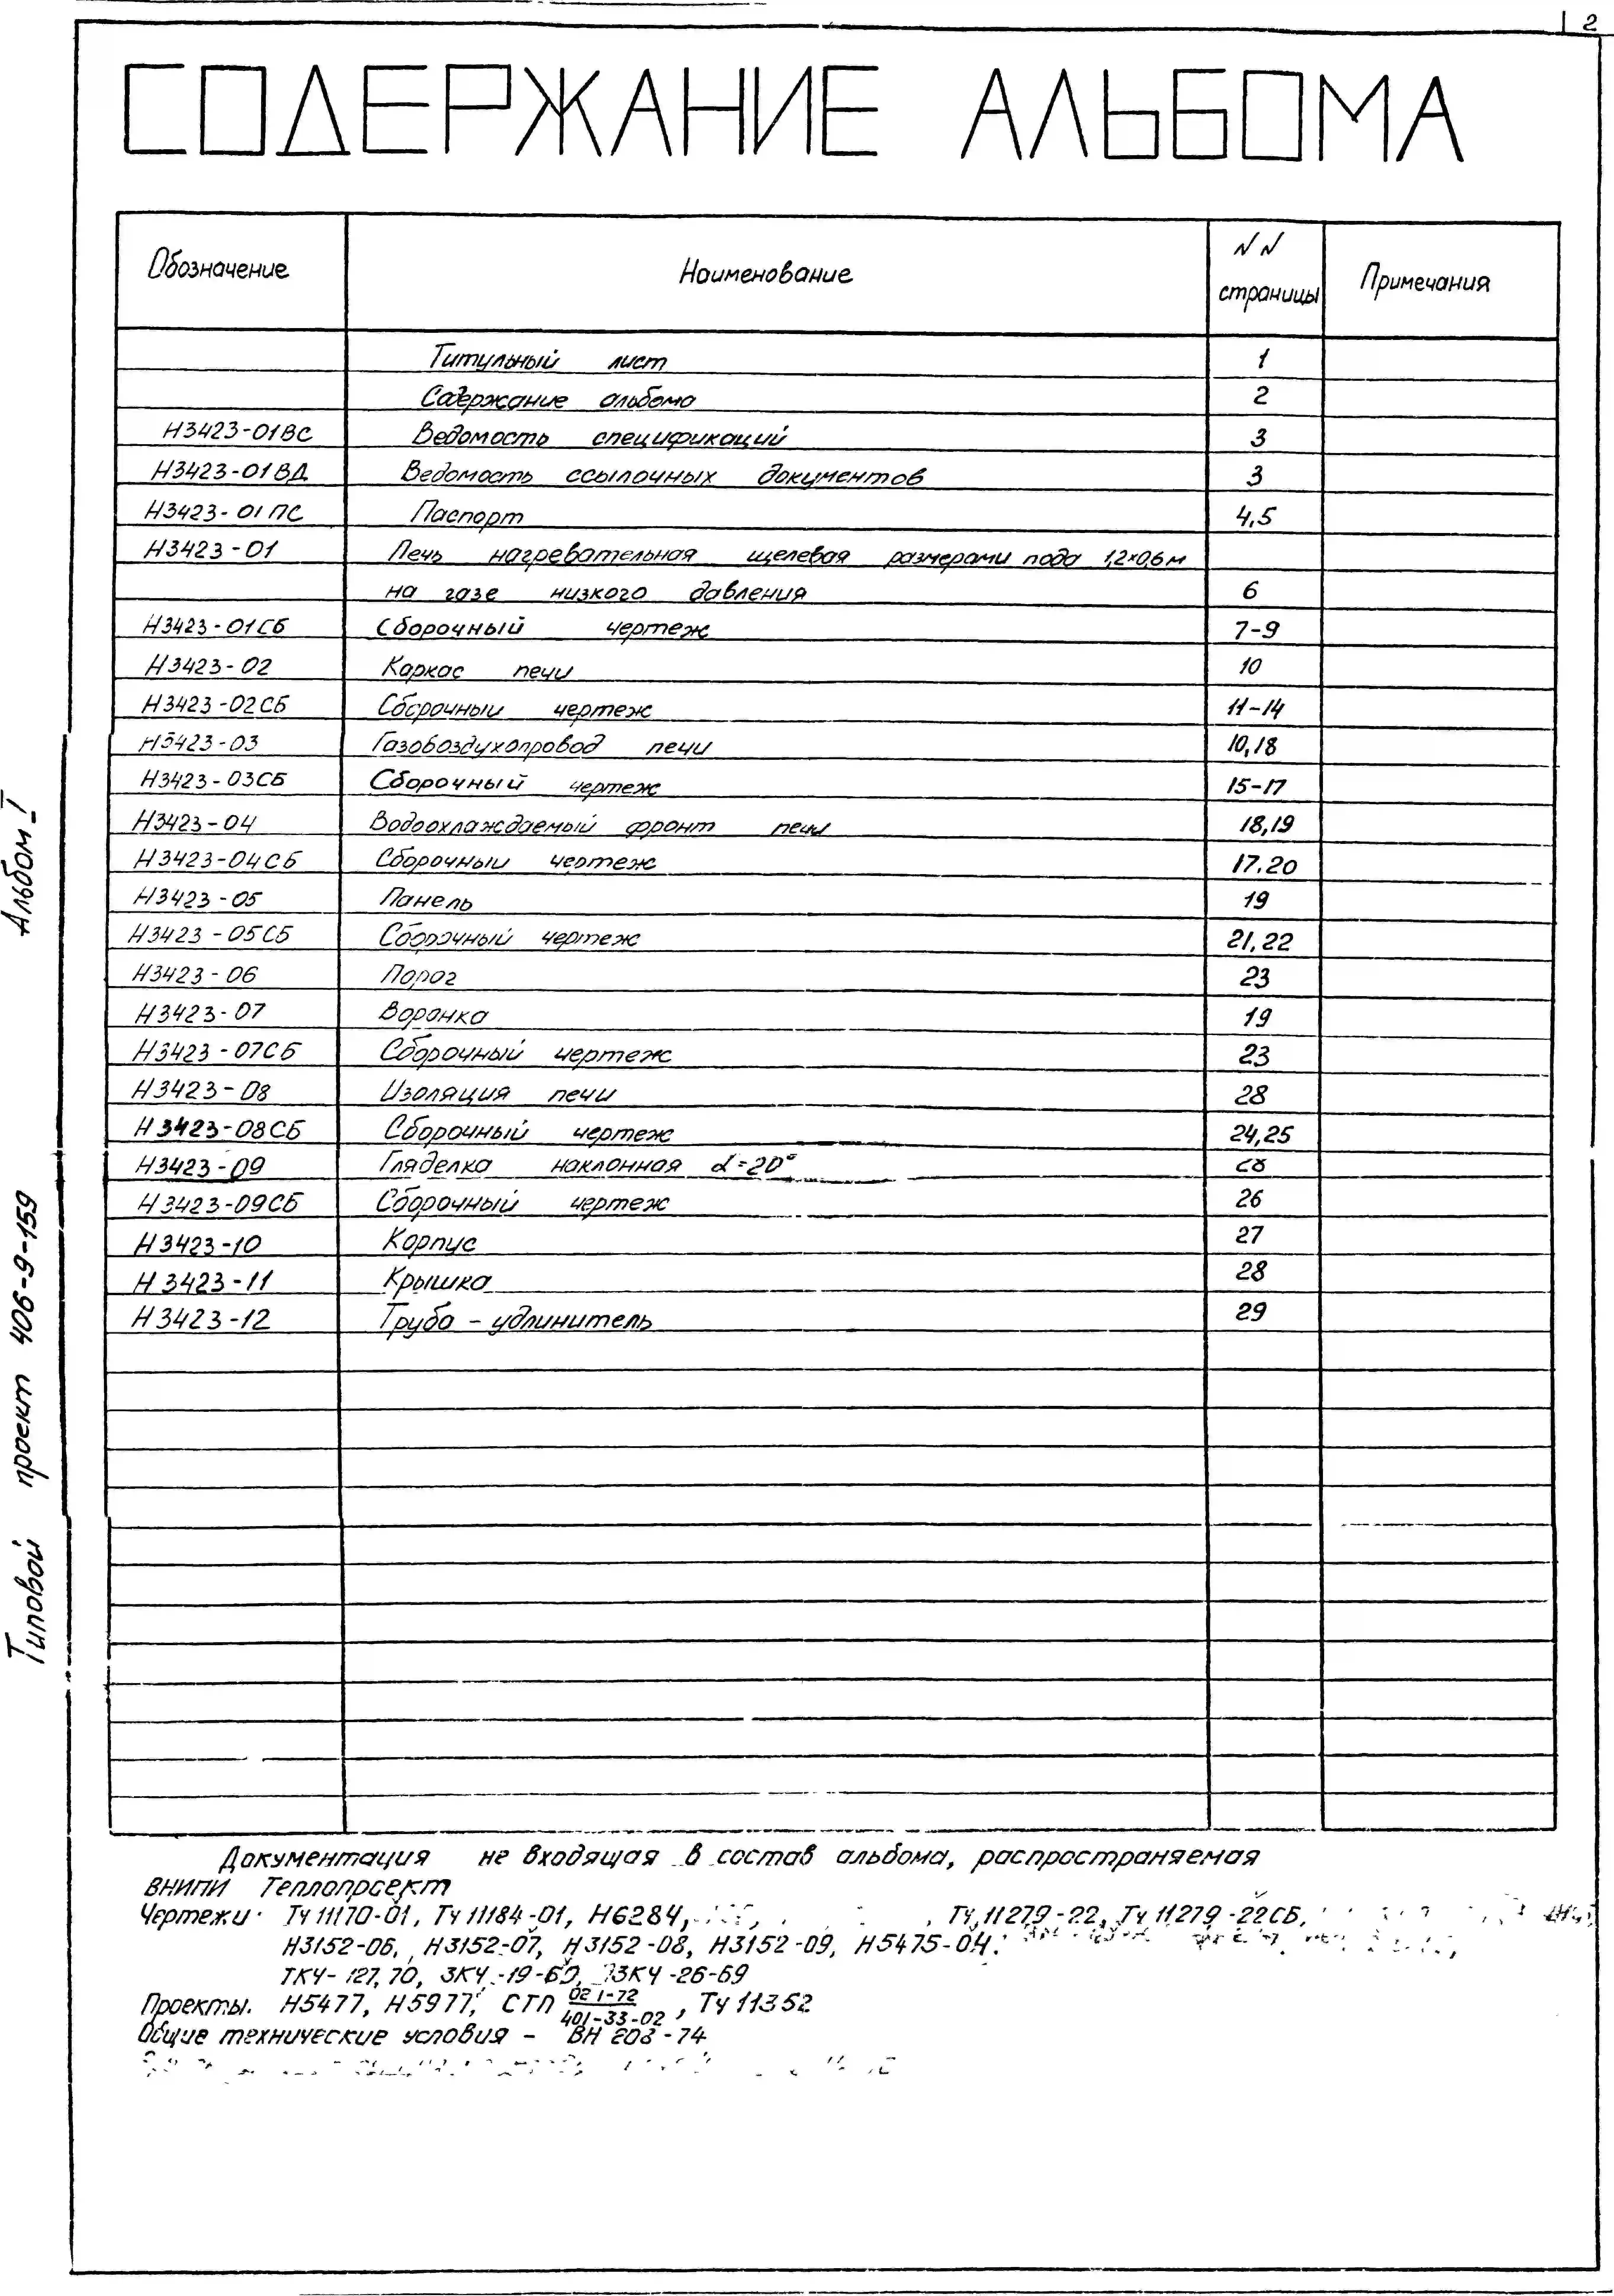 2
СОДЕРЖАНИЕ АЛЬБОМА
Обозначение Наименование NN страницы Примечания
Титульный лист 1
Содержание альбома 2
Н3423-01ВС Ведомость спецификаций 3
Н3423-01ВД Ведомость ссылочных документов 3
Н3423-01ПС Паспорт 4,5
Н3423-01 Печь нагревательная щелевая размерами пода 1,2×0,6м
на газе низкого давления 6
Н3423-01СБ Сборочный чертеж 7-9
Н3423-02 Каркас печи 10
Н3423-02СБ Сборочный чертеж 11-14
Н3423-03 Газовоздухопровод печи 10,18
Н3423-03СБ Сборочный чертеж 15-17
Н3423-04 Водоохлаждаемый фронт печи 18,19
Н3423-04СБ Сборочный чертеж 17.20
Н3423-05 Панель 19
Н3423-05СБ Сборочный чертеж 21,22
Н3423-06 Порог 23
Н3423-07 Воронка 19
Н3423-07СБ Сборочный чертеж 23
Н3423-08 Изоляция печи 28
Н3423-08СБ Сборочный чертеж 24,25
Н3423-09 Гляделка наклонная α=20° 28
Н3423-09СБ Сборочный чертеж 26
Н3423-10 Корпус 27
Н3423-11 Крышка 28
Н3423-12 Труба - удлинитель 29
Документация не входящая в состав альбома, распространяемая
ВНИПИ Теплопроект
Чертежи: Тч 11170-01, Тч 11184-01, Н6284, Тч 11279-22, Тч 11279-22СБ,
Н3152-06, Н3152-07, Н3152-08, Н3152-09, Н5475-04.
ТКЧ-127,70, 3КЧ-19-69, 3КЧ-26-69
Проекты. Н5477, Н5977, СТП 021-72/401-33-02, Тч 11352
Общие технические условия - ВН 208-74
Альбом I
Типовой проект 406-9-159